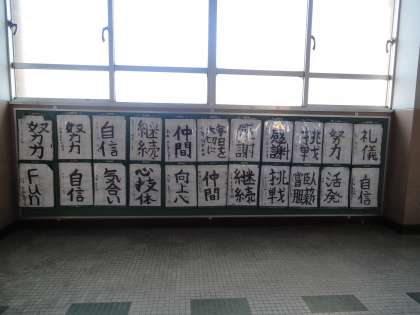 努力
努力
自信
継続
仲間
毎日を
大切に
感謝
感謝
挑戦
努力
礼儀
Fun
自信
気合い
心技体
向上心
仲間
継続
挑戦
臥薪
嘗胆
活発
自信